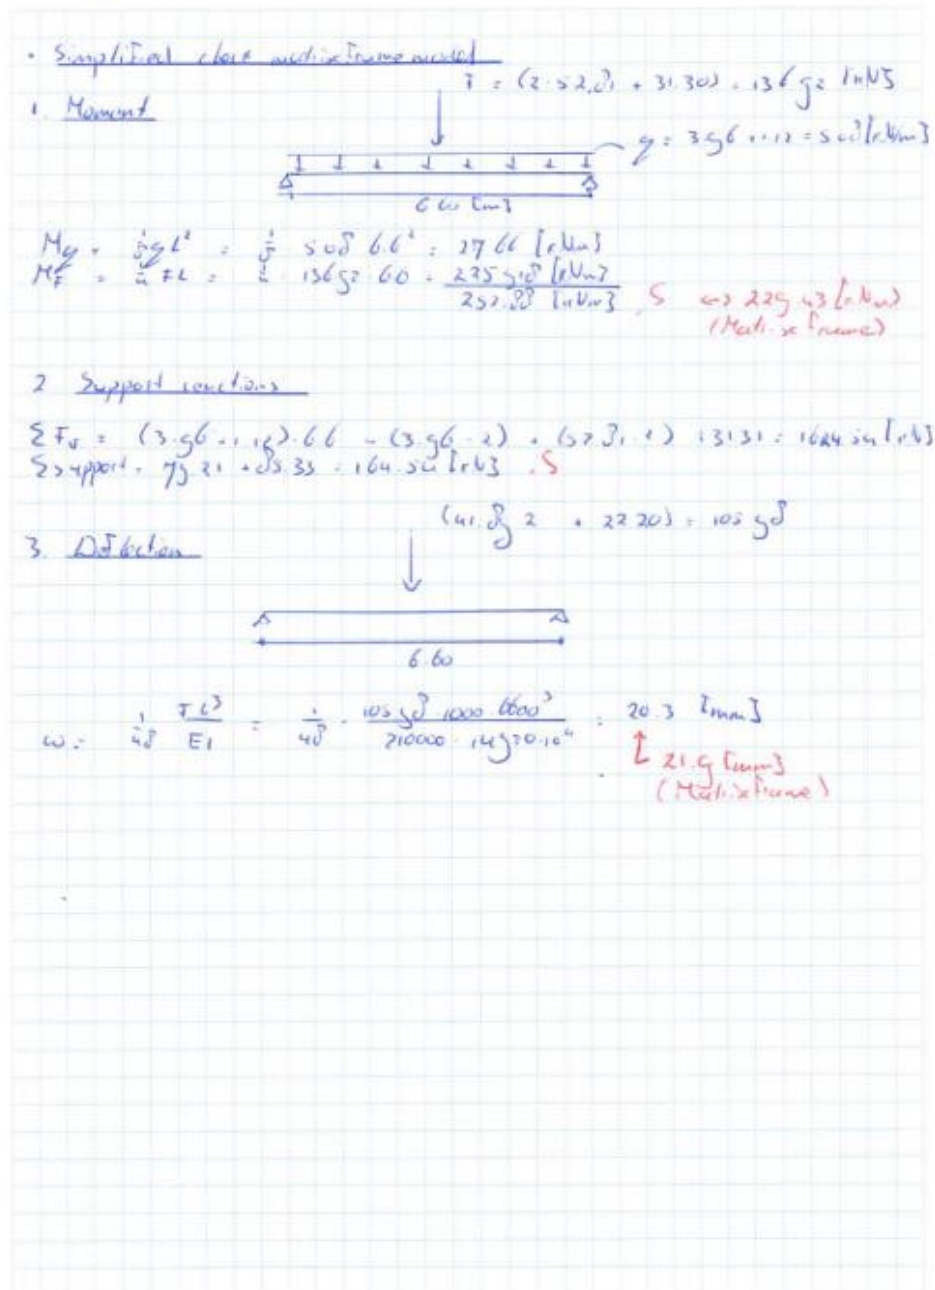 · Simplified check matrixframe model
F = (2·52.81 + 31.30) = 136.92 [kN]
1. Moment
q = 3.96 + 1.12 = 5.08 [kN/m]
6.60 [m]
Mq = 1/8 q L² = 1/8 · 5.08 · 6.6² = 27.66 [kNm]
MF = 1/4 FL = 1/4 · 136.92 · 6.60 = 225.918 [kNm]
252.88 [kNm]
↔ 229.43 [kNm]
(Matrixframe)
2 Support reactions
ΣFv = (3.96 + 1.12)·6.6
Σsupport = 79.21 + 85.33 = 164.54 [kN]
(41.89 · 2 + 22.20) = 105.98
3. Deflection
6.60
w = 1/48 · FL³/EI = 1/48 · 105.98 · 1000 · 6600³ / 210000 · 14920·10⁴ = 20.3 [mm]
21.9 [mm]
(Matrixframe)